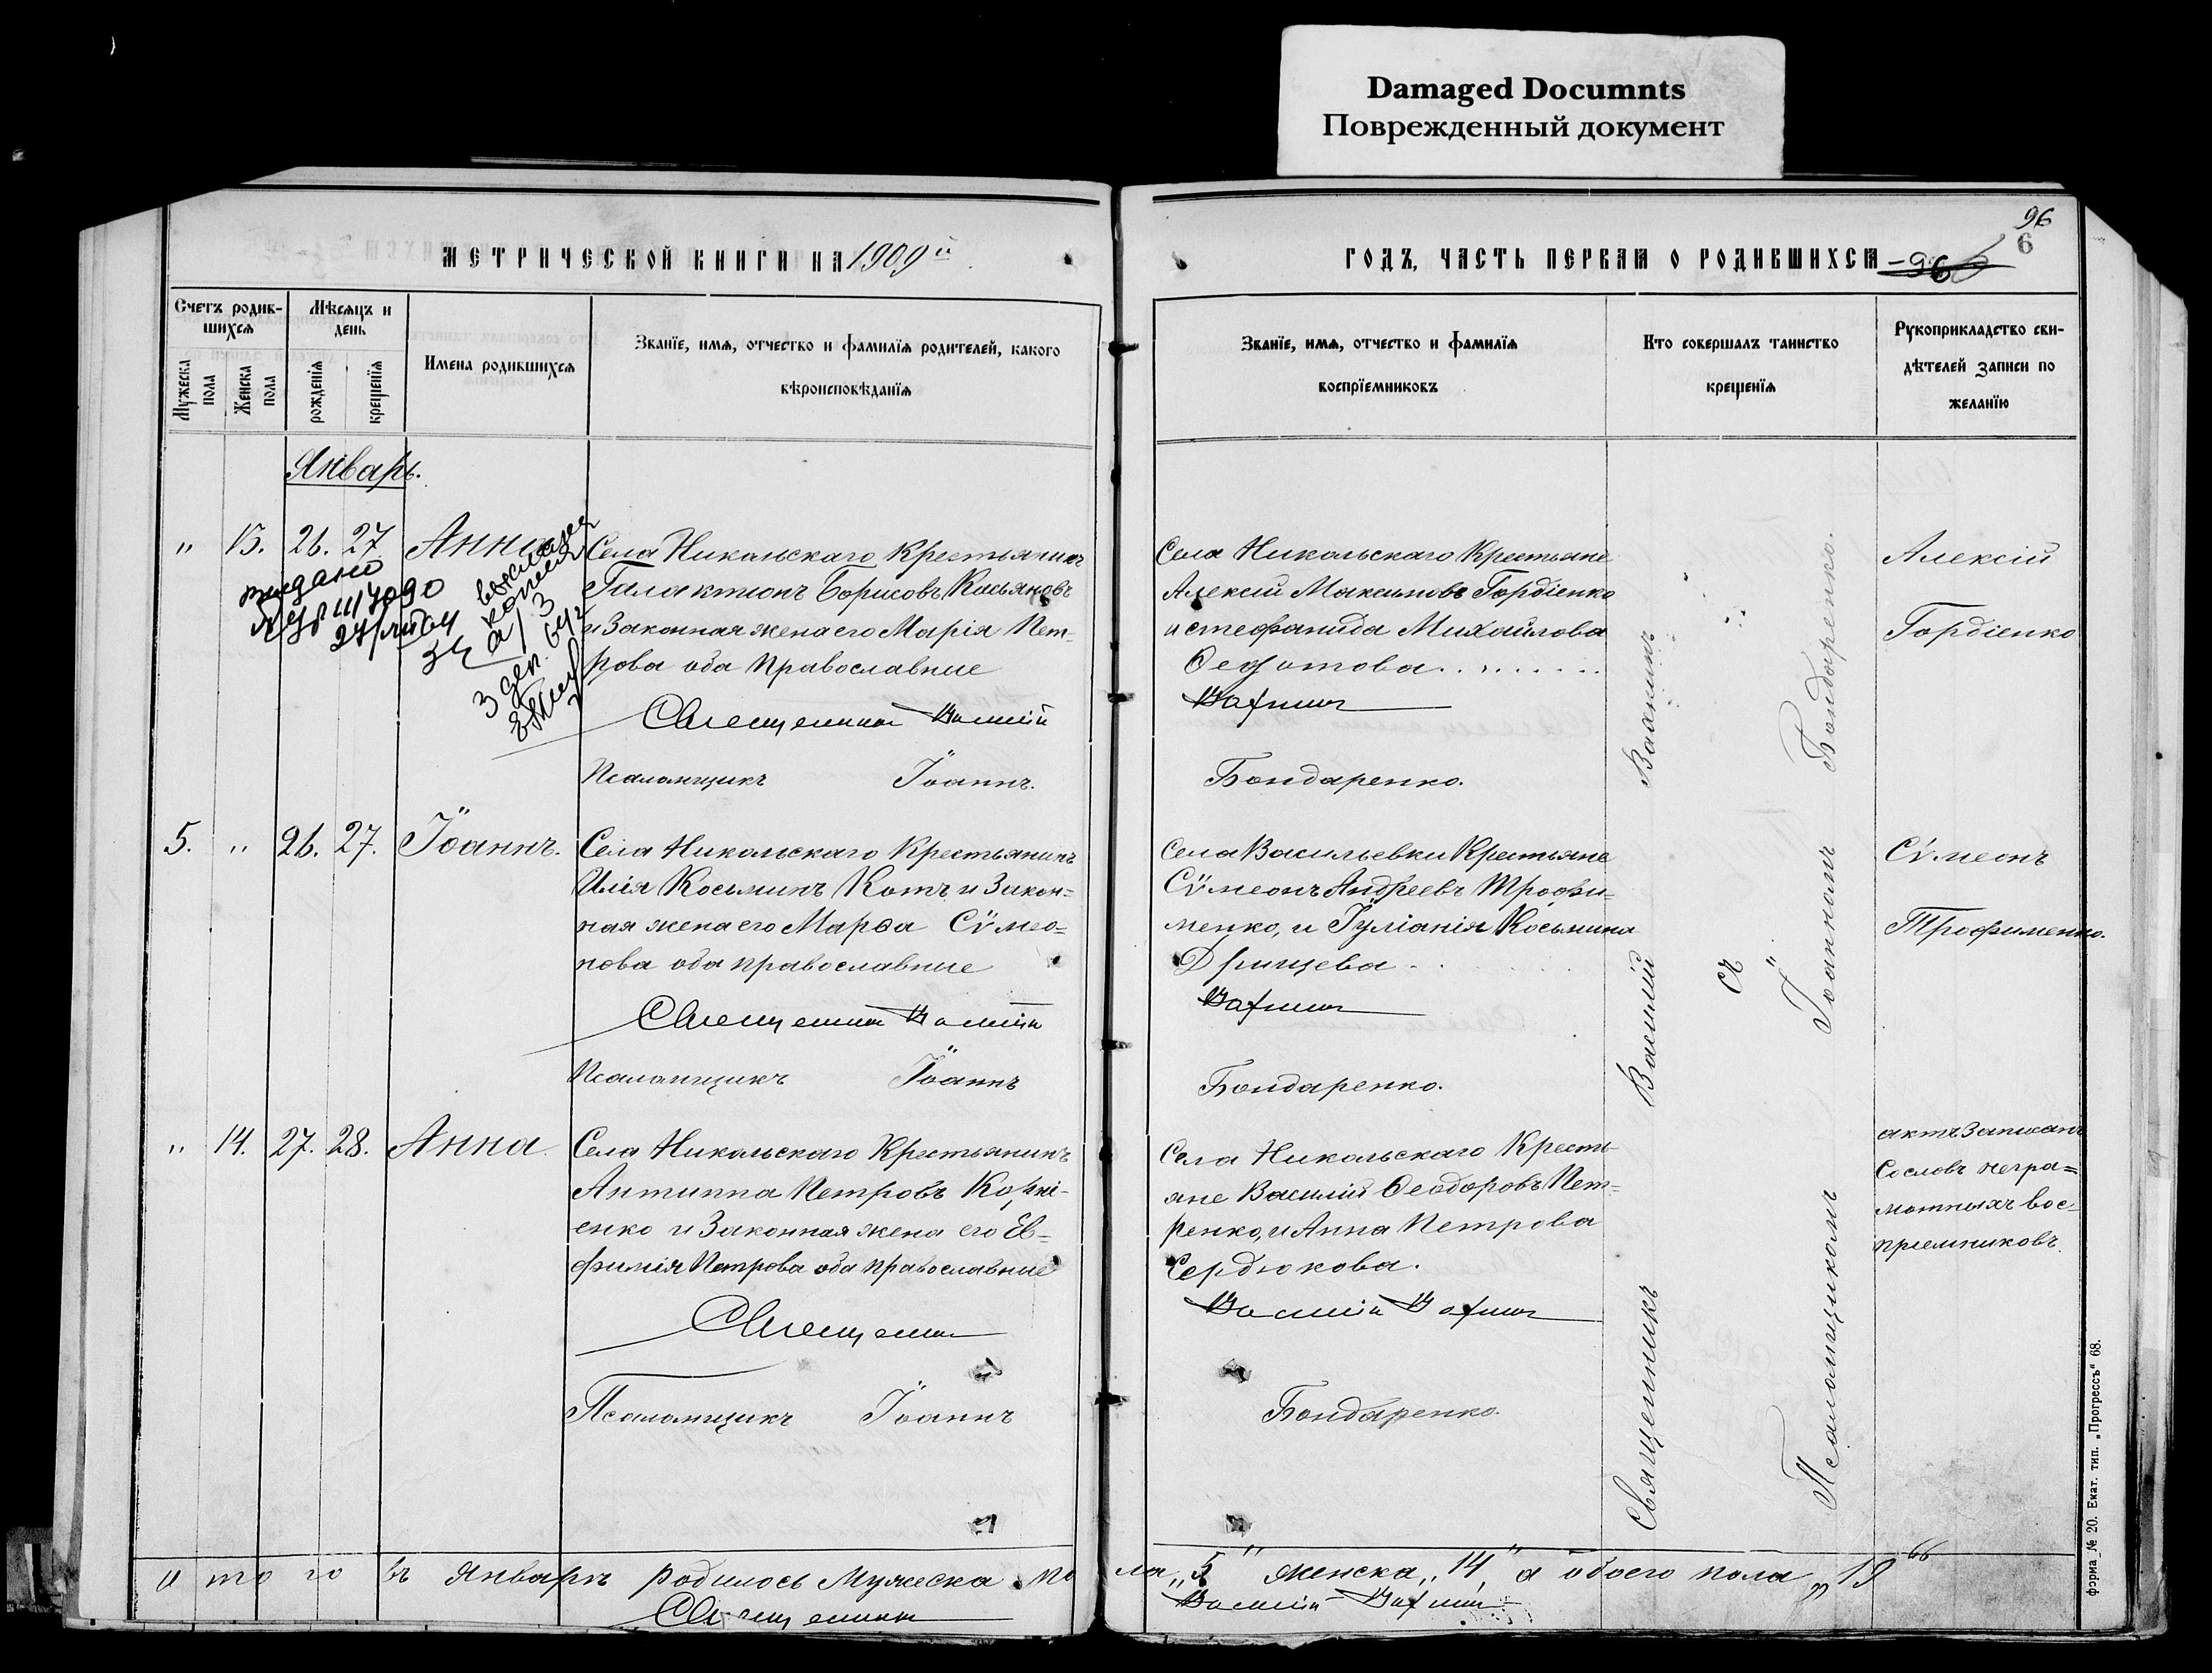 Damaged Documnts
Поврежденный документ
96
6
МЕТРИЧЕСКОЙ КНИГИ НА 1909й
ГОДЪ, ЧАСТЬ ПЕРВАЯ О РОДИВШИХСЯ
Счетъ родив-
шихся
Мѣсяцъ и
день
Мужеска
пола
Женска
пола
рожденїя
крещенїя
Имена родившихся
Званїе, имя, отчество и фамилїя родителей, какого
вѣроисповѣданїя
Званїе, имя, отчество и фамилїя
воспрїемниковъ
Кто совершалъ таинство
крещенїя
Рукоприкладство сви-
дѣтелей записи по
желанїю
Январь.
" 13. 26. 27 Анна
Села Никольскаго Крестьянинъ
Галактіонъ Борисовъ Касьяновъ
и Законная жена его Марія Пет-
рова оба Православные
Священникъ Василій
Псаломщикъ Іоаннъ.
Села Никольскаго Крестьяне
Алексій Максимовъ Гордіенко
и Стефанида Михайлова
Федотова
Бондаренко.
Алексій
Гордіенко
выдано
5. " 26. 27. Іоаннъ.
Села Никольскаго Крестьянинъ
Илія Косьминъ Котъ и Закон=
ная жена его Марѳа Сѵмео=
нова оба православные
Священникъ Василій
Псаломщикъ Іоаннъ
Села Васильевки Крестьяне
Сѵмеонъ Андреевъ Трофи-
менко, и Іуліанія Косьмина
Бондаренко.
Сѵмеонъ
Трофименко.
" 14. 27. 28. Анна.
Села Никольскаго Крестьянинъ
Антиппа Петровъ Корні-
енко и Законная жена его Ев-
фимія Петрова оба православные
Священникъ
Псаломщикъ Іоаннъ
Села Никольскаго Кресть-
яне Василій Ѳеодоровъ Пет-
ренко, и Анна Петрова
Сердюкова.
Василій
Бондаренко.
актъ Записанъ
Со словъ негра=
мотныхъ вос-
пріемниковъ.
Священникъ Василій
съ
Псаломщикомъ Іоанномъ Бондаренко.
Итого въ Январѣ родилось Мужеска пола „5" женска „14" а обоего пола „19"
Священникъ Василій
форма № 20. Екат. тип. „Прогрессъ" 68.